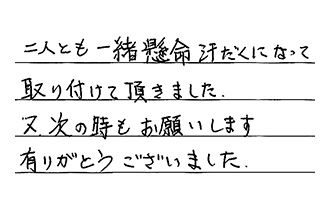 二人とも一緒懸命汗だくになって
取り付けて頂きました.
又、次の時もお願いします
有りがとうございました.